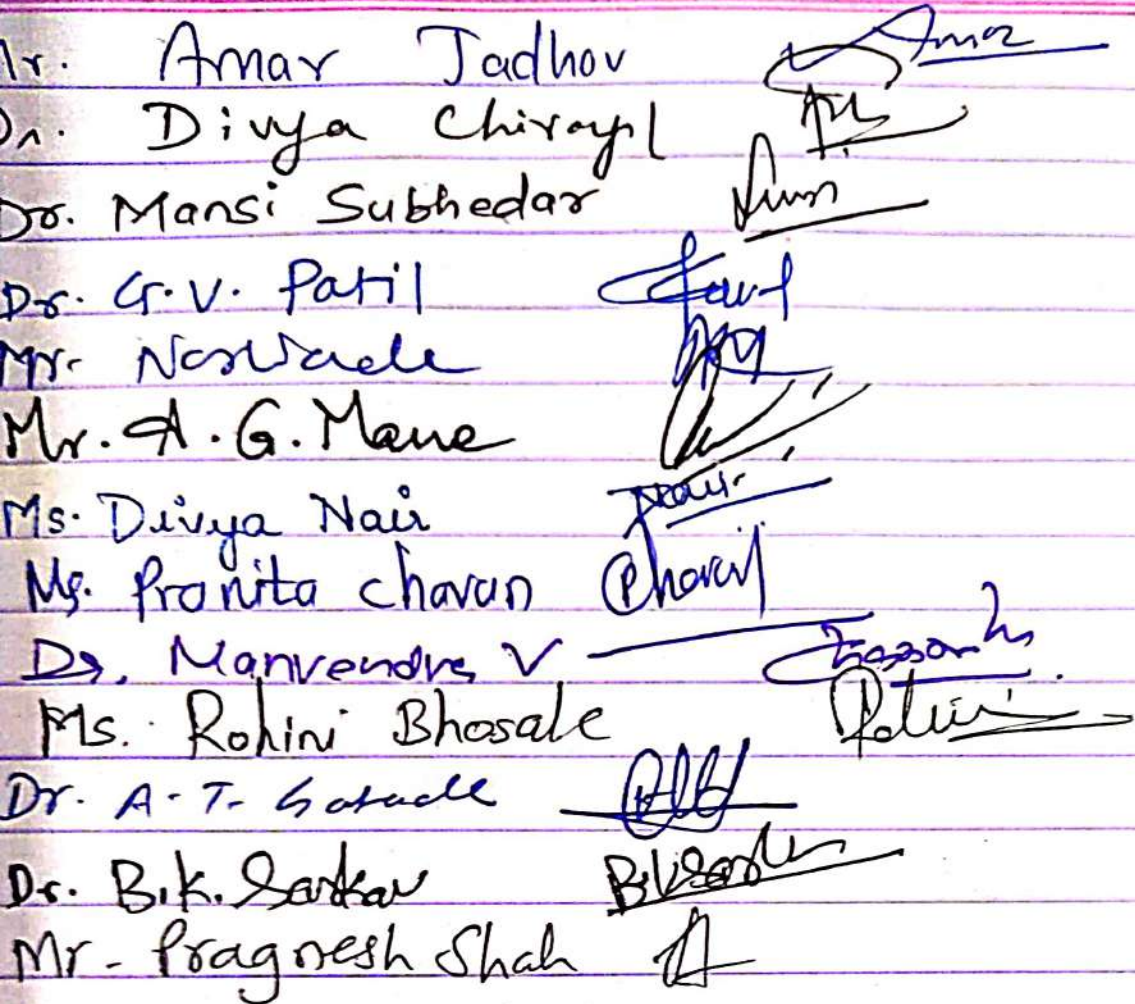 Mr. Amar Jadhov Amar
Dr. Divya Chirayil
Dr. Mansi Subhedar
Dr. G.V. Patil
Mr. Narwade
Mr. A.G. Mane
Ms. Divya Nair Nair
Ms. Pranita chavan Pchavan
Dr. Manvendra V
Ms. Rohini Bhosale Rohini
Dr. A.T.
Dr. B.K. Sarkar BKSarkar
Mr - Pragnesh Shah